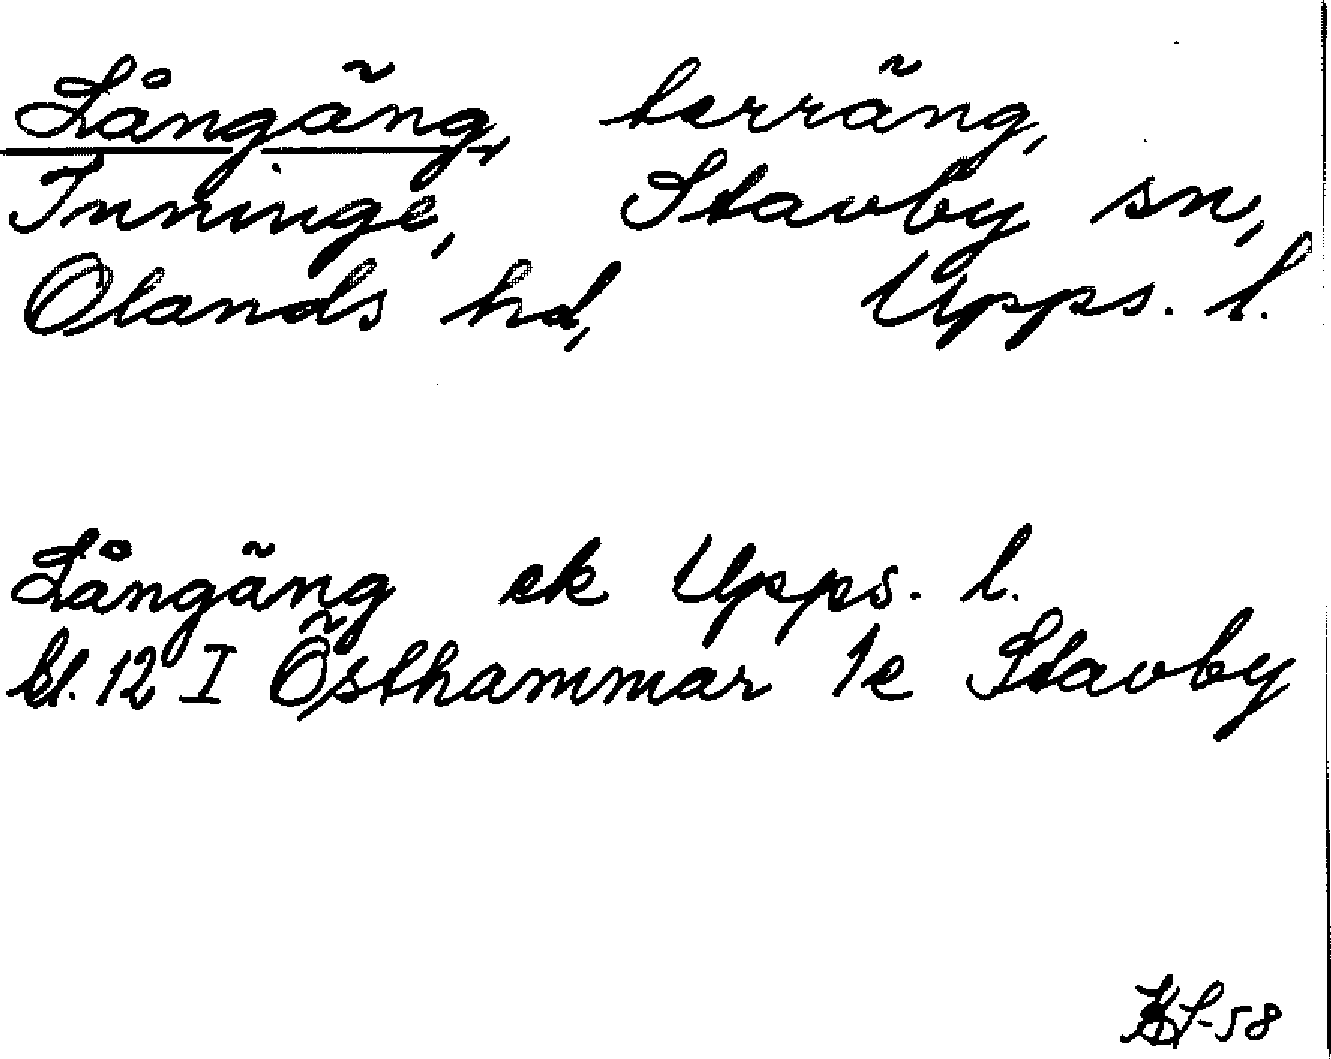 Långäng, terräng,
Inninge, Stavby sn,
Olands hd, Upps. l.
Långäng ek Upps. l.
bl. 12 I Östhammar 1e Stavby
-58